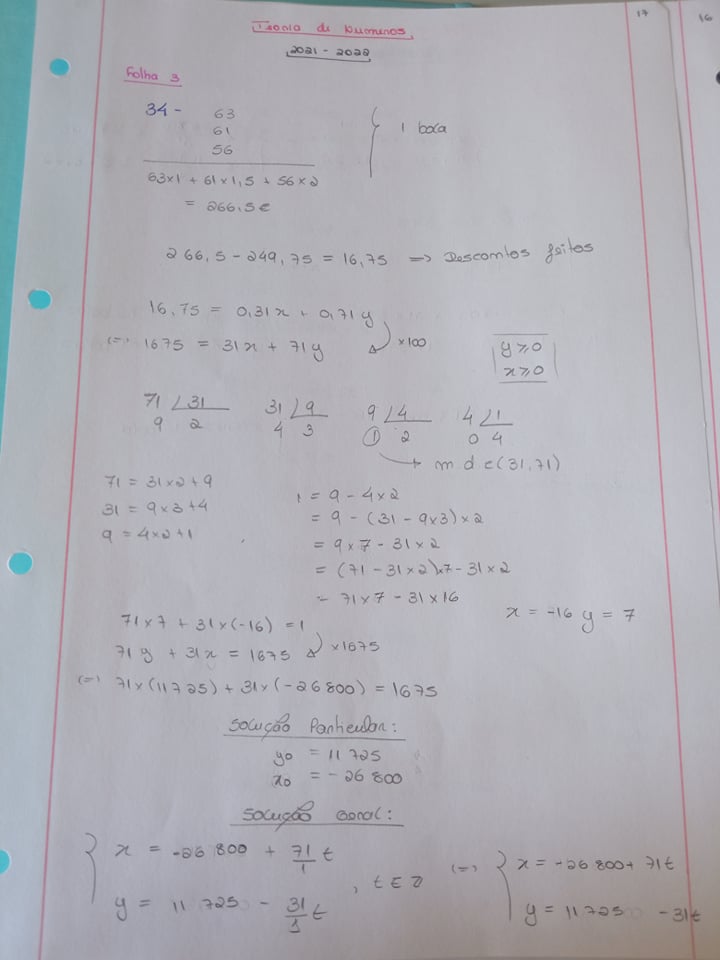 17
16
Teoria de Números
2021 - 2022
Folha 3
34 - 63
61
56
1 boca
63x1 + 61x1,5 + 56x2
= 266.5€
266,5 - 249,75 = 16,75 => Descontos feitos
16,75 = 0,31x + 0,71y
(=) 1675 = 31x + 71y
x100
y ≥ 0
x ≥ 0
71 | 31
9 2
31 | 9
4 3
9 | 4
1 2
4 | 1
0 4
→ m d c (31, 71)
71 = 31x2 + 9
31 = 9x3 + 4
9 = 4x2 + 1
1 = 9 - 4x2
= 9 - (31 - 9x3)x2
= 9x7 - 31x2
= (71 - 31x2)x7 - 31x2
= 71x7 - 31x16
x = -16 y = 7
71x7 + 31x(-16) = 1
71y + 31x = 1675
x1675
(=) 71x(11725) + 31x(-26800) = 1675
Solução Particular:
y0 = 11 725
x0 = - 26 800
Solução Geral:
{ x = -26 800 + 71/1 t
y = 11 725 - 31/1 t
, t ∈ Z
(=) { x = -26 800 + 71t
y = 11 725 - 31t